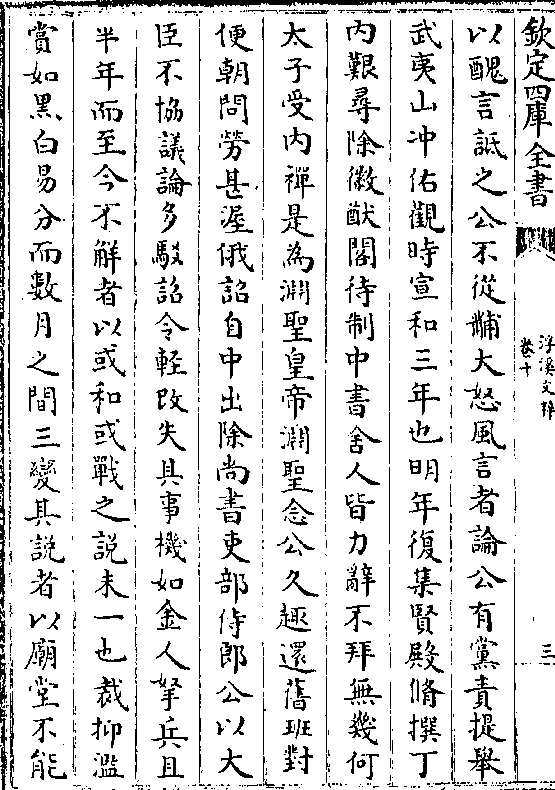 欽定四庫全書
浮溪文粹
卷十
三
以醜言詆之公不從黼大怒風言者論公有黨責提舉
武夷山冲佑觀時宣和三年也明年復集賢殿脩撰丁
内艱尋除徽猷閣待制中書舍人皆力辭不拜無幾何
太子受内禪是為淵聖皇帝淵聖念公久趣還舊班對
便朝問勞甚渥俄詔自中出除尚書吏部侍郎公以大
臣不協議論多駮詔令輕改失其事機如金人拏兵且
半年而至今不解者以或和或戰之説未一也裁抑濫
賞如黒白易分而數月之間三變其説者以廟堂不能